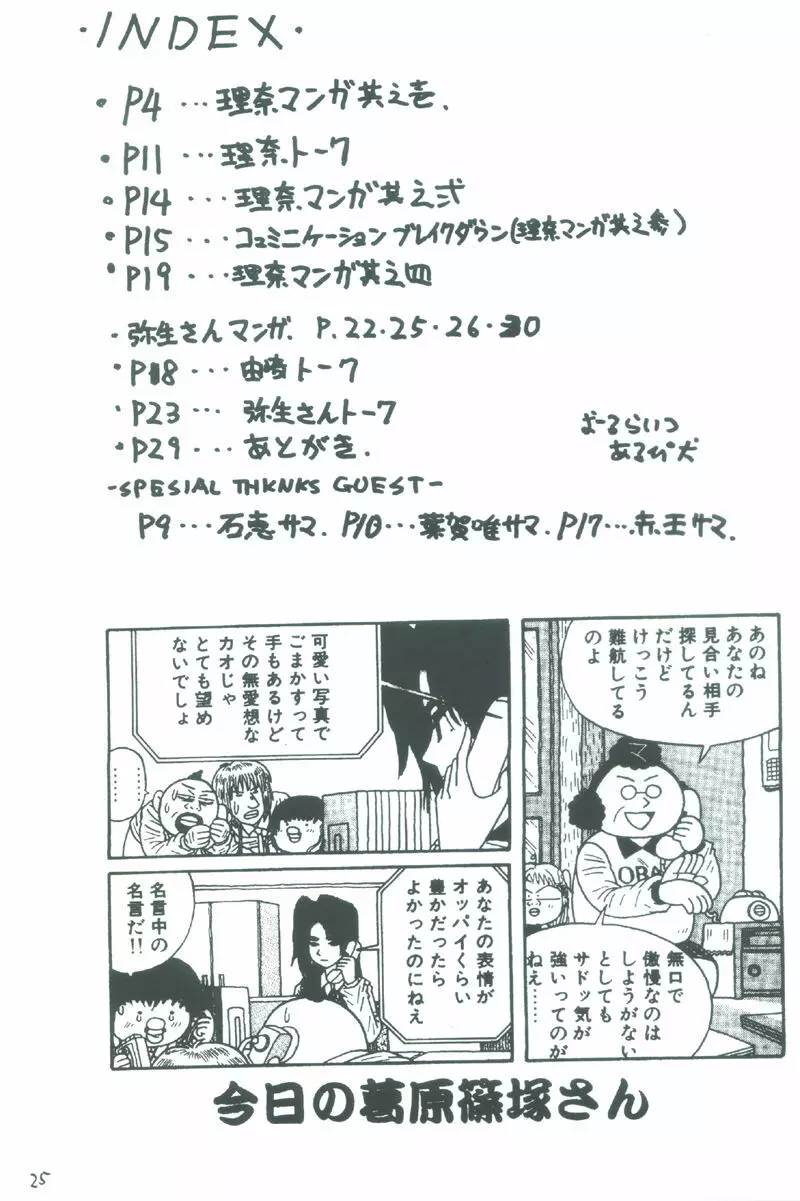 ・INDEX・
・P4 ・・・理奈マンガ其之壱.
・P11 ・・・理奈トーク
・P14 ・・・理奈マンガ其之弐
・P15 ・・・コュミニケーションブレイクダウン(理奈マンガ其之参)
・P19 ・・・理奈マンガ其之四
・弥生さんマンガ. P.22・25・26・30
・P18 ・・・由崎トーク
・P23 ・・・弥生さんトーク
・P29 ・・・あとがき.
おーるらいつ
あるぴ犬
-SPESIAL THKNKS GUEST-
P9・・・石恵サマ. P10・・・葉賀唯サマ. P17・・・赤王サマ.
あのね
あなたの
見合い相手
探してるん
だけど
けっこう
難航してる
のよ
マ
OBA
無口で
傲慢なのは
しようがない
としても
サドッ気が
強いってのが
ねえ……
可愛い写真で
ごまかすって
手もあるけど
その無愛想な
カオじゃ
とても望め
ないでしょ
……
……
あなたの表情が
オッパイくらい
豊かだったら
よかったのにねえ
名言中の
名言だ!!
今日の葛原篠塚さん
25